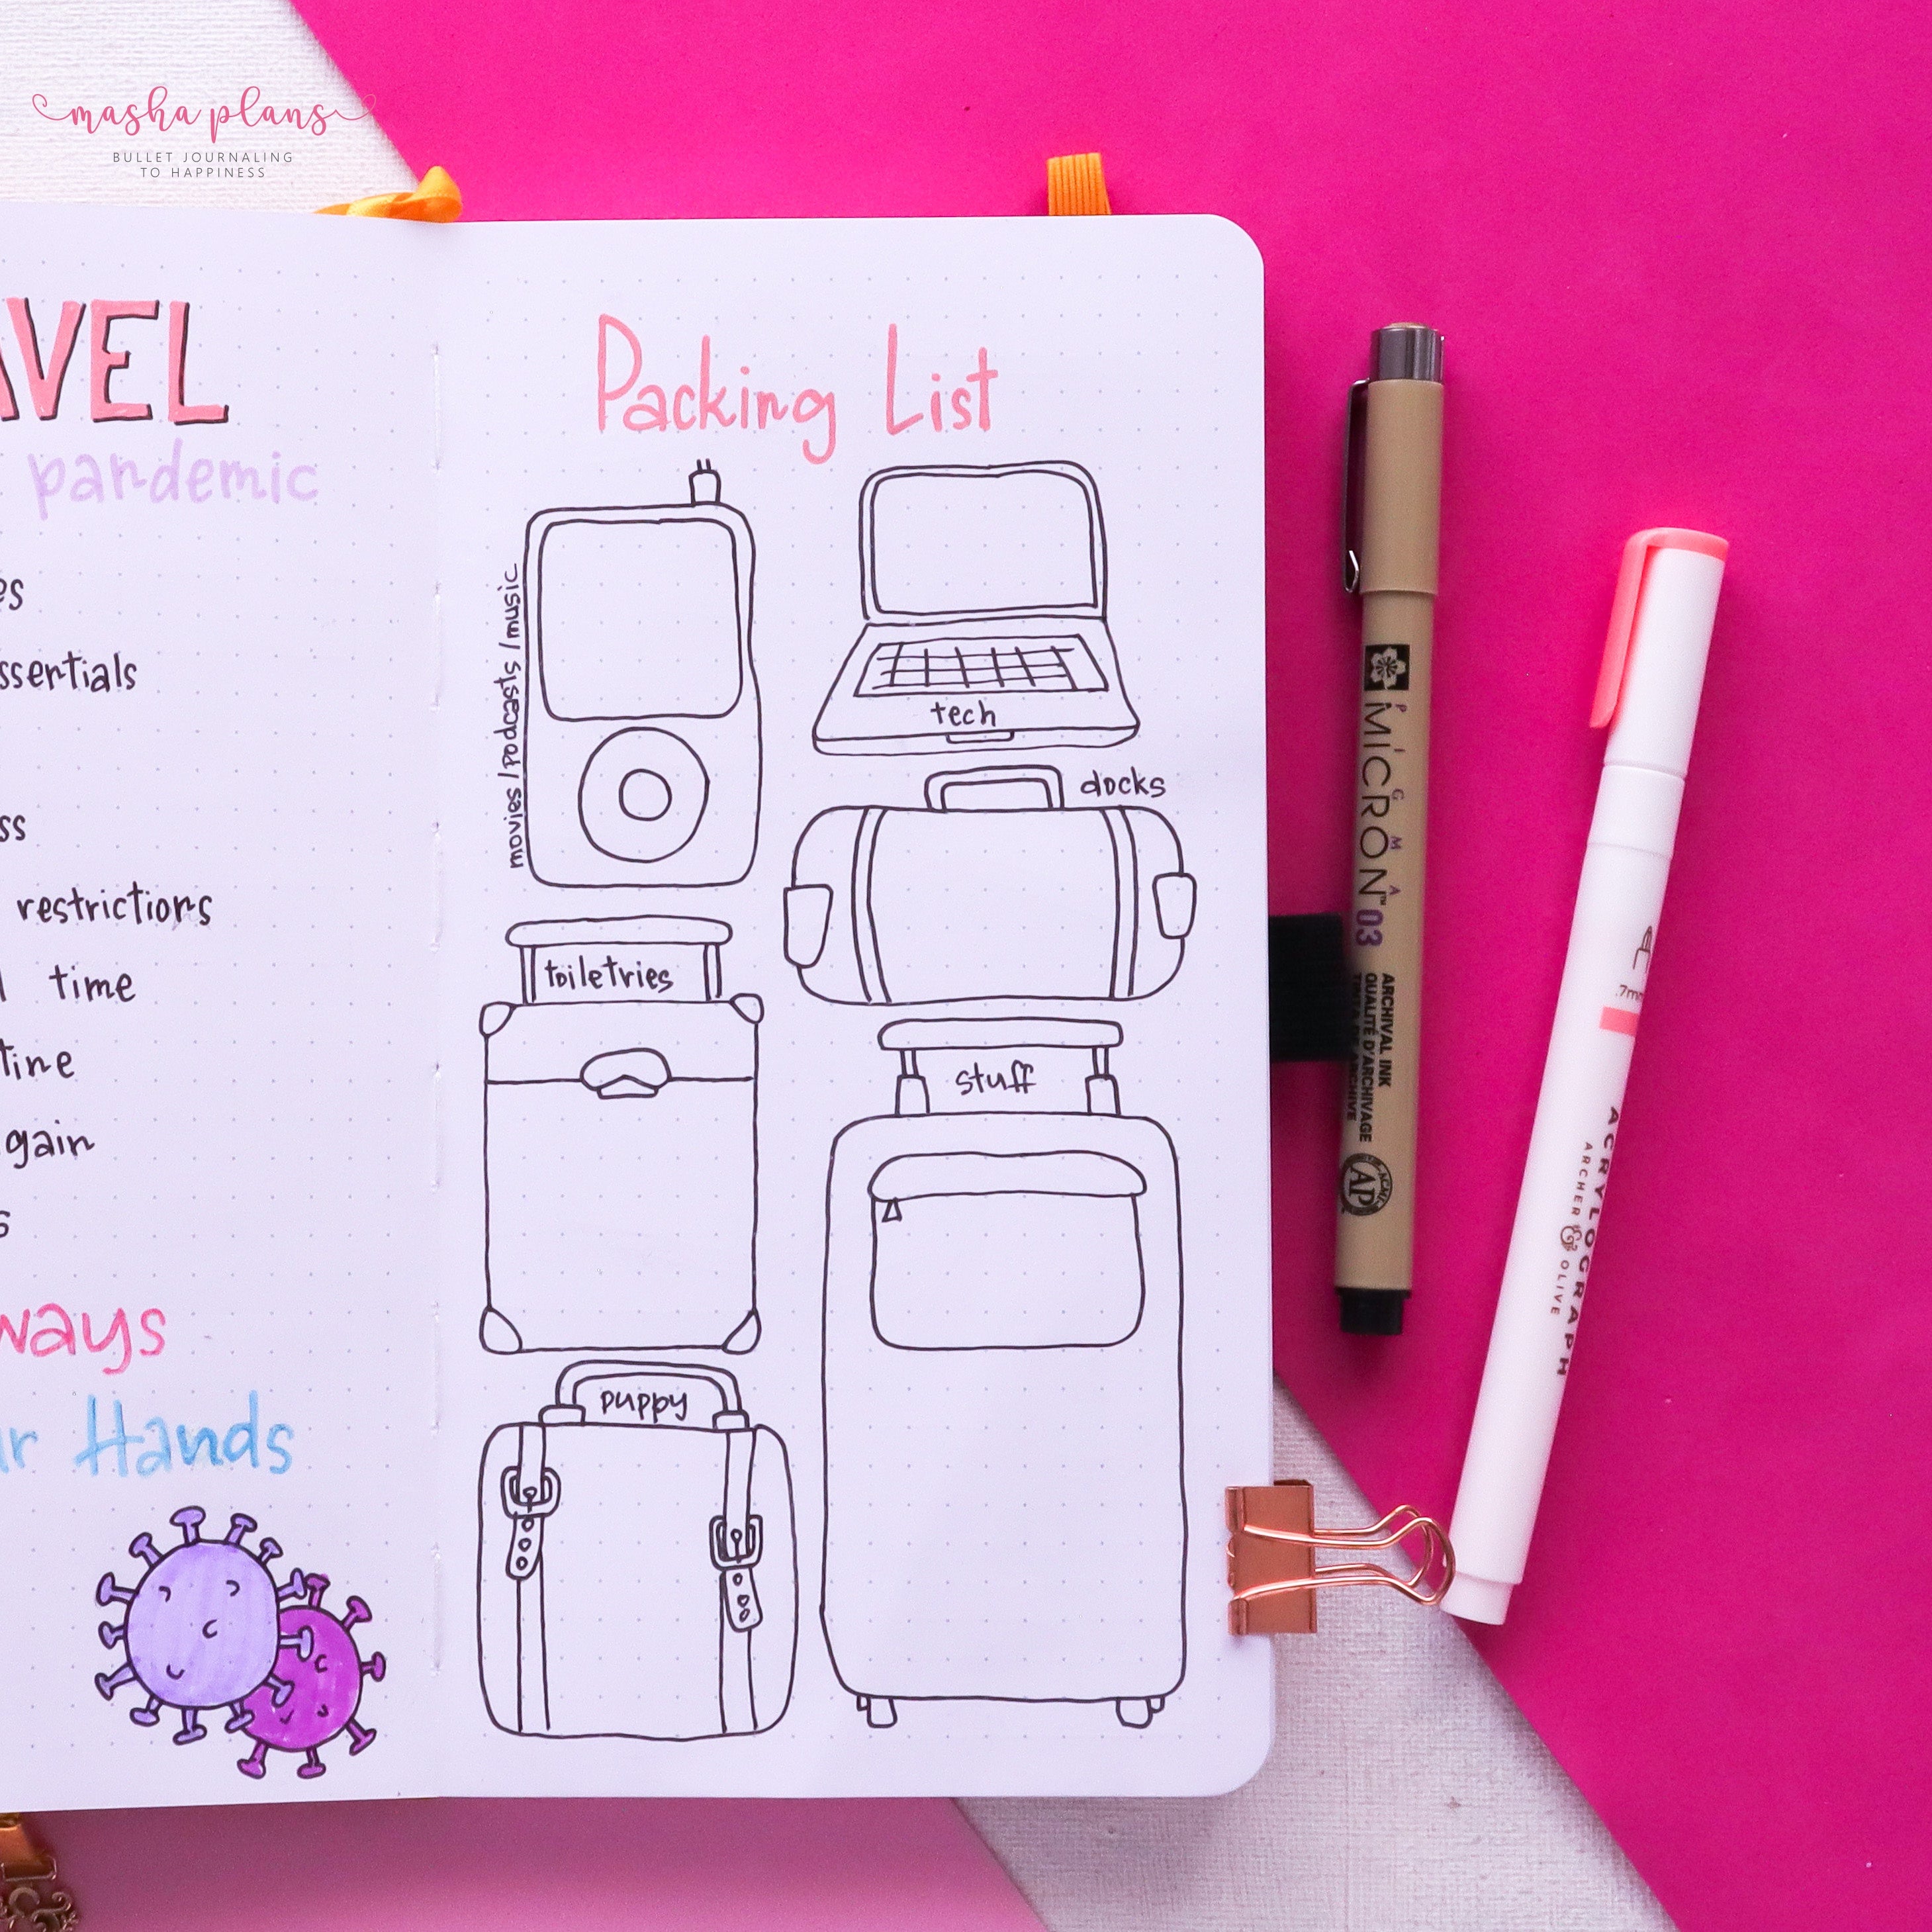 masha plans
BULLET JOURNALING
TO HAPPINESS
AVEL
pandemic
es
ssentials
ss
restrictions
time
tine
gain
s
ways
ur Hands
Packing List
movies / podcasts / music
tech
docks
toiletries
stuff
puppy
PIGMA
MICRON™ 03
ARCHIVAL INK
QUALITÉ D'ARCHIVAGE
TINTA DE ARCHIVE
ACMI
AP
.7m
ACRYLOGRAPH
ARCHER & OLIVE